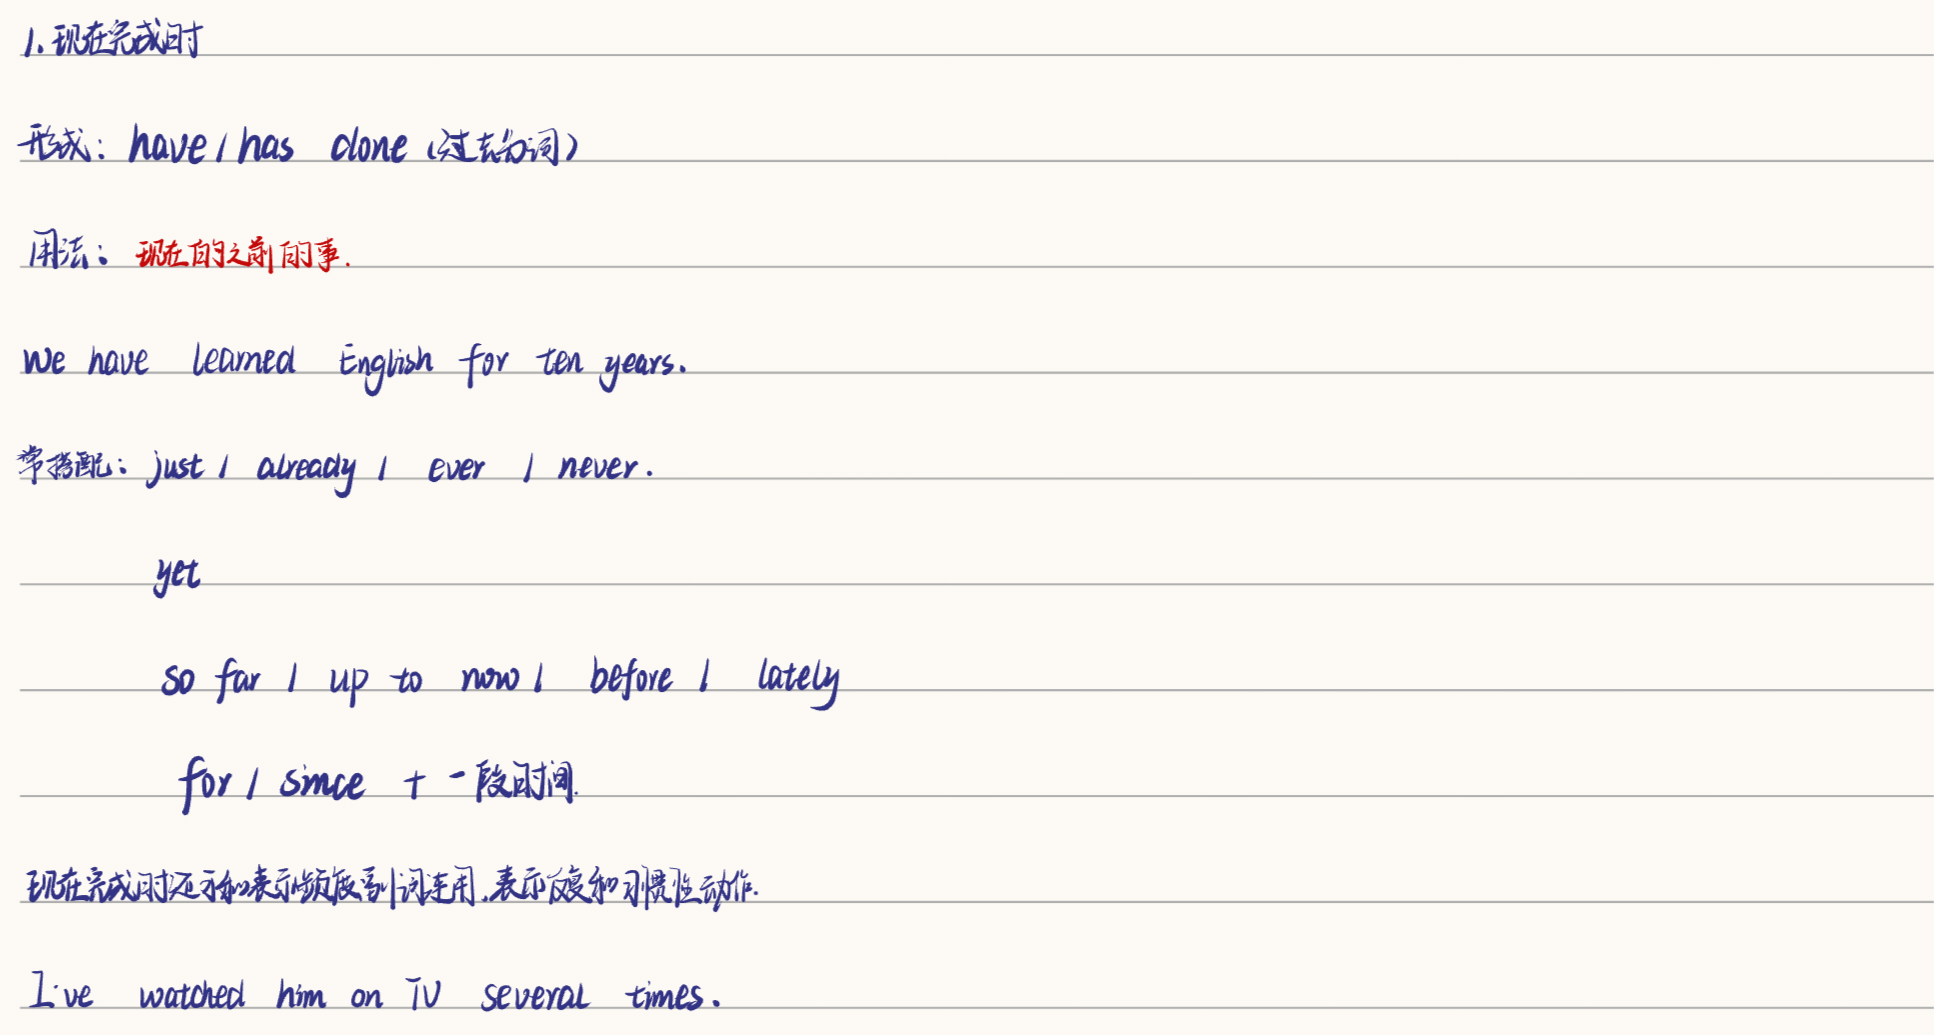 1. 现在完成时
形成: have / has done (过去分词)
用法: 现在的之前的事.
we have learned English for ten years.
常搭配: just / already / ever / never.
yet
so far / up to now / before / lately
for / since + 一段时间.
现在完成时还可和表示频度副词连用,表示反复和习惯性动作.
I've watched him on TV several times.